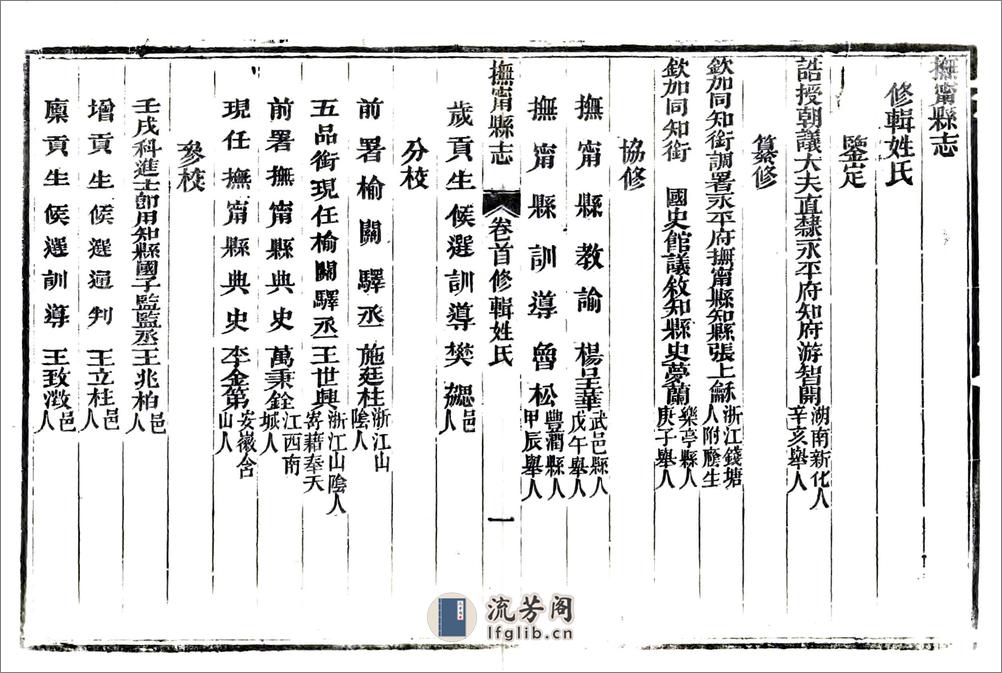 撫甯縣志
修輯姓氏
鑒定
誥授朝議大夫直隸永平府知府游智開湖南新化人辛亥舉人
纂修
欽加同知銜調署永平府撫甯縣知縣張上龢浙江錢塘人附膳生
欽加同知銜 國史館議敘知縣史夢蘭樂亭縣人庚子舉人
協修
撫甯縣教諭楊呈華武邑縣人戊午舉人
撫甯縣訓導魯松豐潤縣人甲辰舉人
撫甯縣志 卷首修輯姓氏 一
歲貢生候選訓導樊邑人
分校
前署榆關驛丞施廷柱浙江山陰人
五品銜現任榆關驛丞王世興浙江山陰人寄藉奉天
前署撫甯縣典史萬秉銓江西南城人
現任撫甯縣典史李金第安徽含山人
參校
壬戌科進士卽用知縣國子監監丞王兆柏邑人
增貢生候選通判王立柱邑人
廩貢生候選訓導王致澂邑人
流芳阁
lfglib.cn